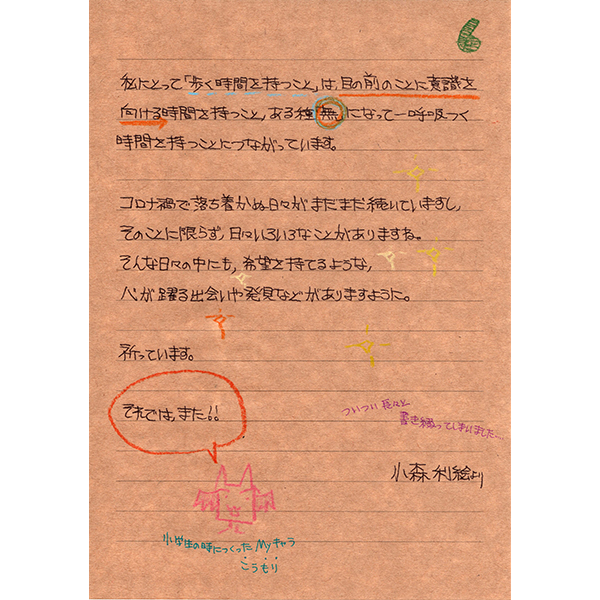 6
私にとって「歩く時間を持つこと」は、目の前のことに意識を
向ける時間を持つこと、ある種「無」になって一呼吸つく
時間を持つことにつながっています。
コロナ禍で落ち着かぬ日々がまだまだ続いていますし、
そのことに限らず、日々いろいろなことがありますね。
そんな日々の中にも、希望を持てるような、
心が躍る出会いや発見などがありますように。
祈っています。
それでは、また!!
ついつい長々と
書き綴ってしまいました…
小森利絵より
小学生の時につくったMyキャラ
こうもり